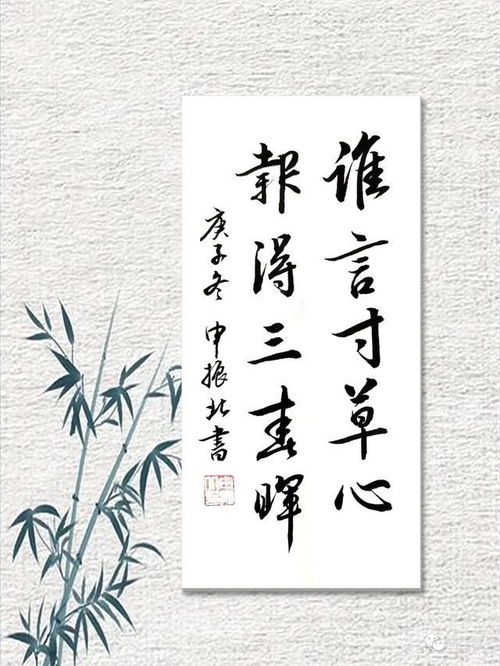 谁言寸草心
報得三春暉
庚子冬 申振北書